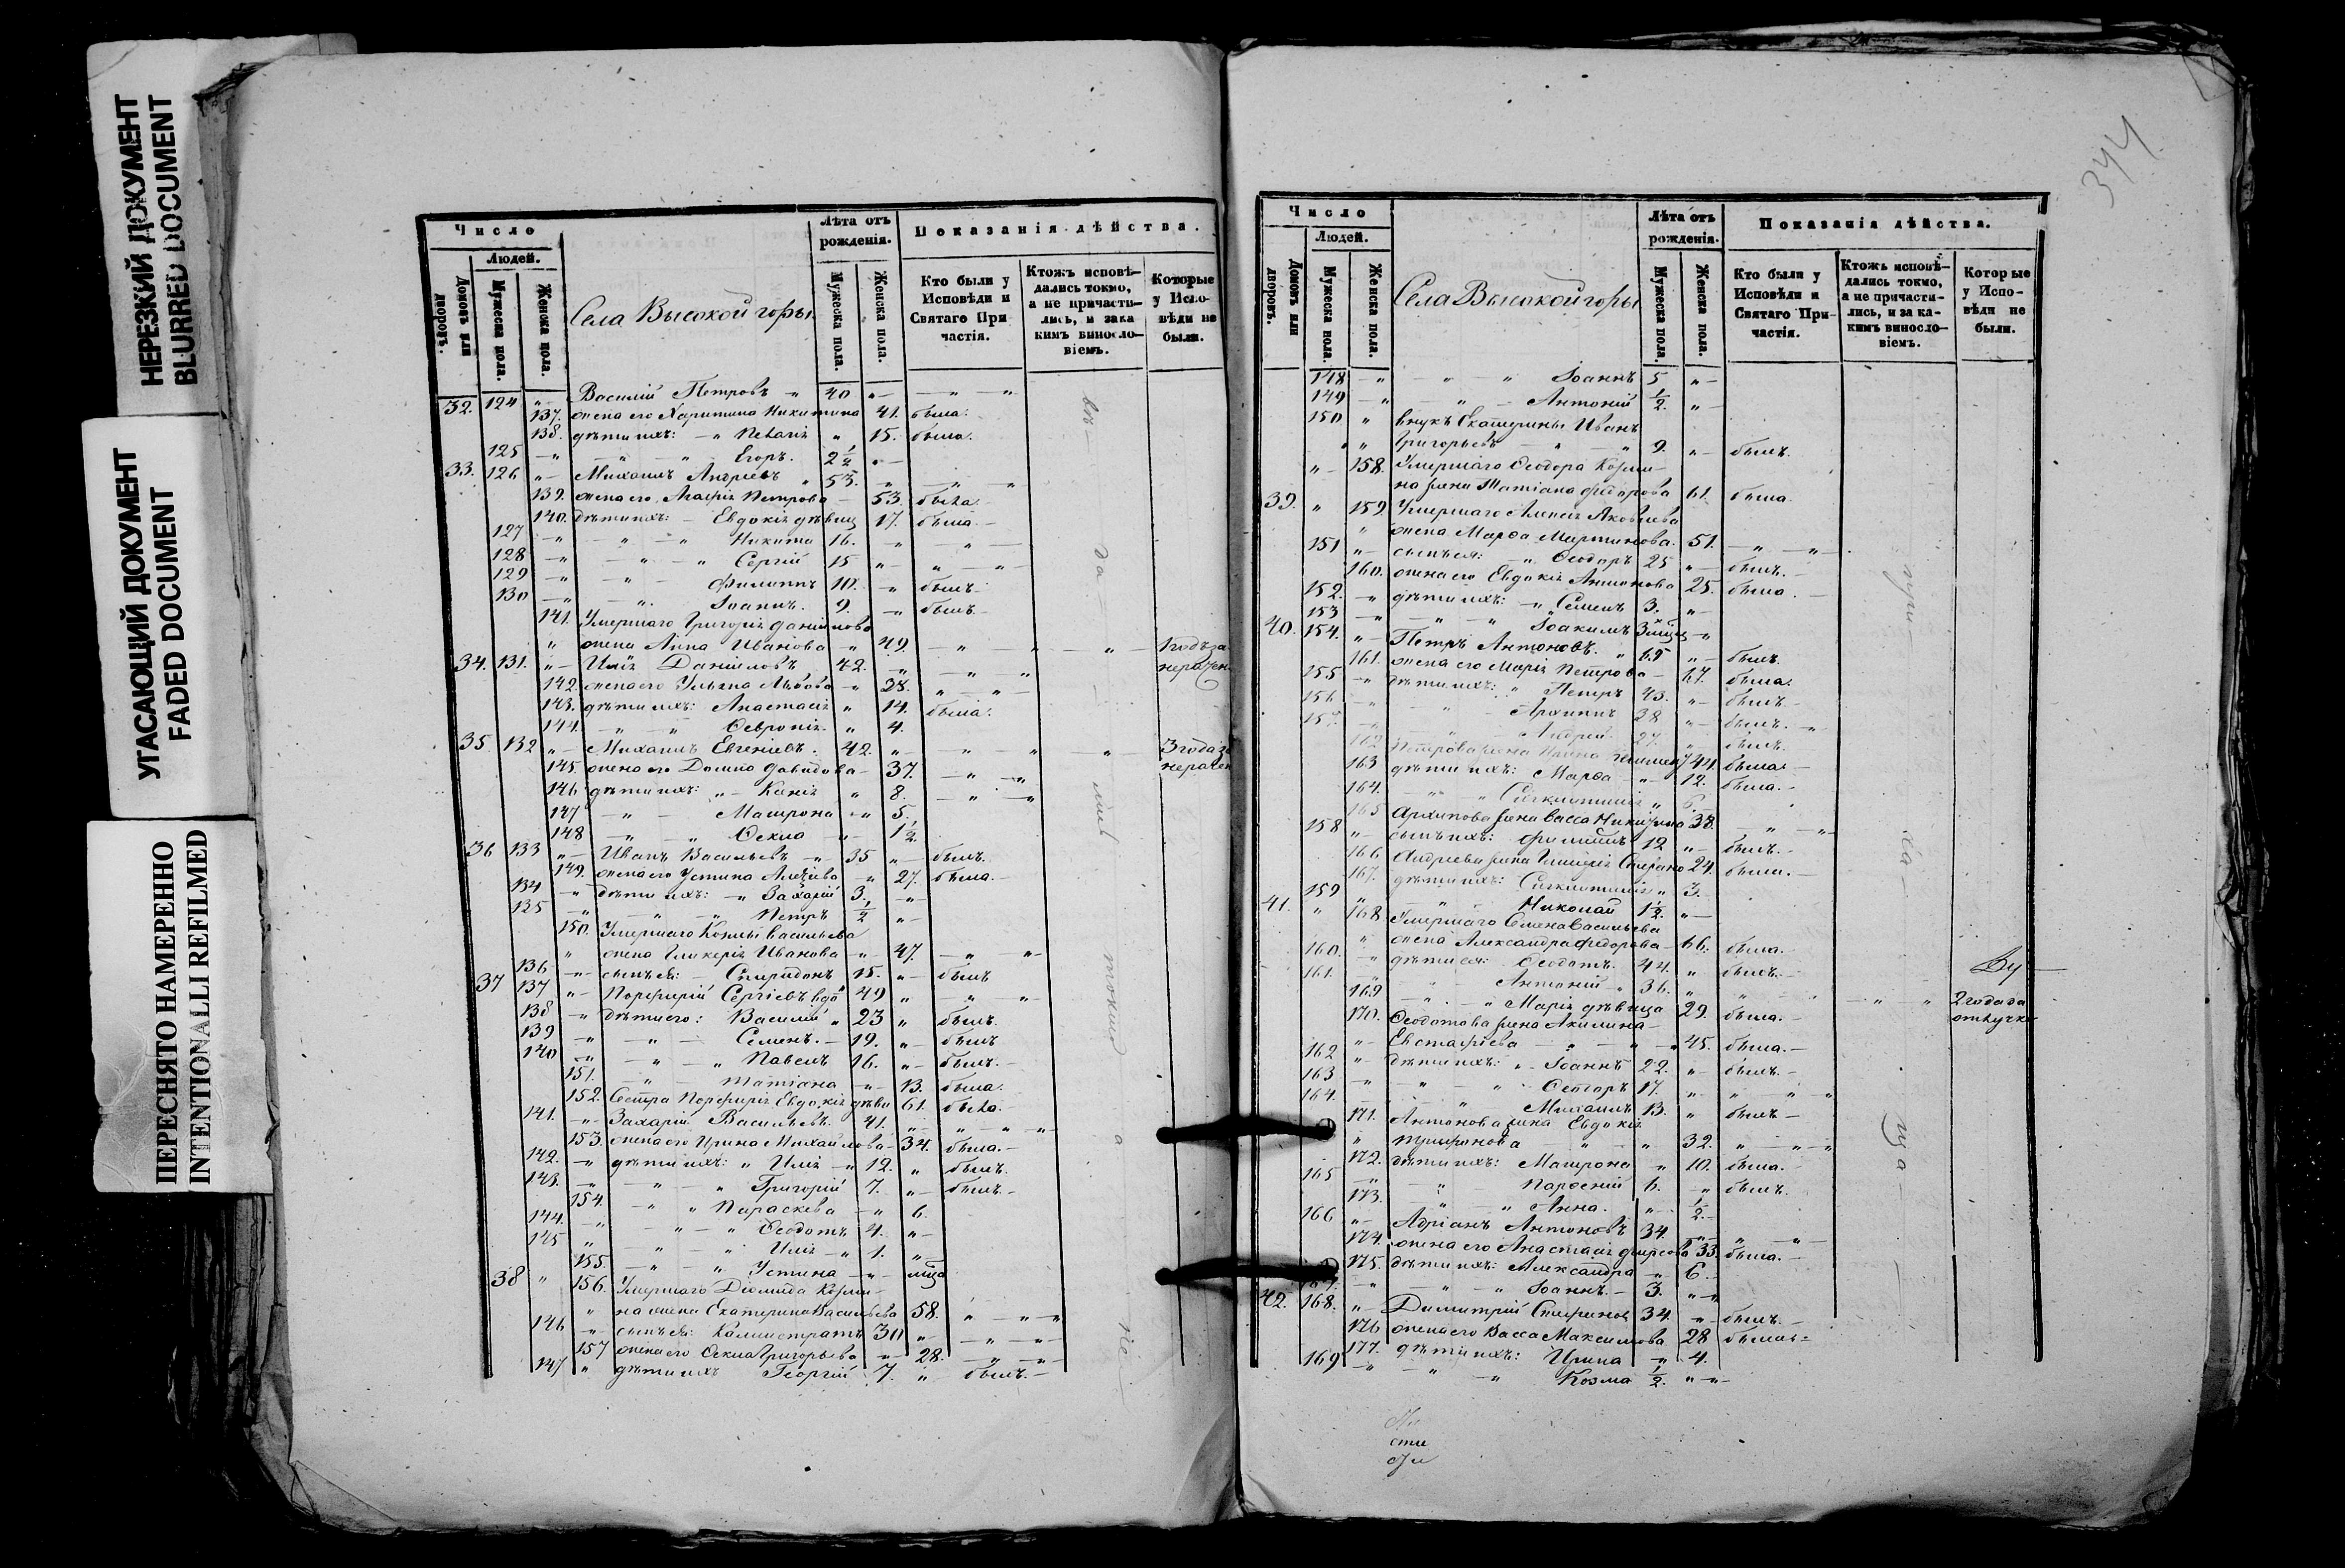 НЕРЕЗКИЙ ДОКУМЕНТ
BLURRED DOCUMENT
УГАСАЮЩИЙ ДОКУМЕНТ
FADED DOCUMENT
ПЕРЕСНЯТО НАМЕРЕННО
INTENTIONALLI REFILMED
Число
Людей.
Домовъ или дворовъ.
Мужеска пола.
Женска пола.
Села Высокой горы.
Лѣта отъ рожденія.
Мужеска пола.
Женска пола.
Показанія дѣйства.
Кто были у Исповѣди и Святаго Причастія.
Ктожъ исповѣдались токмо, а не причастились, и за какимъ винословіемъ.
Которые у Исповѣди не были.
32. 124 „ Василій Петровъ „ 40 „
137. жена его Харитина Никитина 41. была.
138. дѣти ихъ: „ Пелагія „ 15. была.
125 „ „ „ Егоръ. 2 1/2 „
33. 126 „ Михаилъ Андреевъ „ 53. „ „ „
139. жена его Агафія Петрова 53 была.
140. дѣти ихъ: Евдокія дѣвиц 17. была.
127 „ „ „ Никита 16. „ „
128 „ „ „ Сергій 15 „ „ „
129 „ „ Филиппъ 10. „ былъ
130 „ „ Іоаннъ. 9. „ былъ
141. Умершаго Григорія Данилова
„ жена Анна Иванова „ 49. „ „ „
34. 131. „ Илія Даниловъ 42. „ „ „
142. жена его Ульяна Львова „ 38. „ „
143. дѣти ихъ: Анастасія „ 14. была.
144. „ „ Февронія „ 4.
35. 132 „ Михаилъ Евгеніевъ. 42. „ „ „ „ 3 года за
145. жена его Домна Давидова 37. „ „
146 дѣти ихъ: „ Ксенія „ 8. „ „
147 „ Матрона „ 5.
148 „ „ Фекла „ 1 1/2
36 133 „ Иванъ Васильевъ „ 35 „ былъ.
149. жена его Устина Алексіева „ 27. была.
134 „ дѣти ихъ: „ Захарій 3. „
135 „ „ „ Петръ 1/2 „
150. Умершаго Козмы Васильева
„ жена Гликерія Иванова „ 47. „ „
136 „ сынъ ея: Спиридонъ 15. „ былъ
37 137 „ Порфирій Сергіевъ вдо 49 „ „ „
138 „ дѣти его: Василій „ 23 „ былъ.
139 „ „ Семенъ. 19. „ былъ
140 „ „ „ Павелъ 16. „ былъ.
151. „ Татіана „ 13. была.
152. Сестра Порфирія Евдокія дѣви 61. была.
141. „ Захарій Васильевъ. 41. „ „ „ „
153. жена его Ирина Михайлова 34. была.
142. „ дѣти ихъ: „ Илія „ 12. „ былъ.
143. „ „ „ Григорій 7. „ былъ.
154. „ „ Параскева „ 6.
144. „ „ „ Феодотъ 4. „
145 „ „ „ Илія „ 1. „
155. „ „ Устина „ мца
38 „ 156. Умершаго Діомида Корми
„ на жена Екатерина Васильева 58. „ „ „
146 „ сынъ ея: Калистратъ 30 „ „ „
157 жена его Фекла Григорьева „ 28. „ „
147 „ дѣти ихъ Георгій 7. „ былъ.
344
Число
Людей.
Домовъ или дворовъ.
Мужеска пола.
Женска пола.
Села Высокой горы
Лѣта отъ рожденія.
Мужеска пола.
Женска пола.
Показанія дѣйства.
Кто были у Исповѣди и Святаго Причастія.
Ктожъ исповѣдались токмо, а не причастились, и за какимъ винословіемъ.
Которые у Исповѣди не были.
148 „ „ „ Іоаннъ 5 „
149 „ „ Антоній 1/2. „
150 „ внукъ Екатерины Иванъ
„ Григорьевъ „ „ 9. „ былъ.
„ 158. Умершаго Феодора Корми
на жена Татіана Федорова 61. была.
39. „ 159. Умершаго Алексія Яковлева
„ жена Марфа Мартинова. 51. „ „
151 „ сынъ ея: „ Феодоръ 25 „ былъ.
160. жена его Евдокія Антонова 25. была.
152. „ дѣти ихъ: „ Семенъ 3. „
153 „ „ „ Іоакимъ 3 мцъ „
40. 154. „ Петръ Антоновъ. „ 65 „ былъ.
161. жена его Марія Петрова 67. была.
155 „ дѣти ихъ: „ Петръ 43. „ былъ.
156 „ „ Архипъ 38 „ былъ. „
157. „ „ Андрей 27. „ былъ.
162 Петрова жена 44. была.
163 дѣти ихъ: Марфа „ 12. была.
164. „ „ „ 6.
165 Архипова жена Васса Никитина 38. „ „
158 „ сынъ ихъ: Филиппъ 12 „ былъ.
166 Андреева жена 24. была.
167. дѣти ихъ: „ 3.
159 „ „ Николай 1 1/2. „
41. „ 168. Умершаго Семена Васильева
„ жена Александра Федорова 66. была.
160. „ дѣти ея: Феодотъ 44. „ былъ.
161. „ „ Антоній „ 36. „ „ „ „ „ 2 года за
169 „ „ Марія дѣвица 29. была. отлучк
170. Феодотова жена Акилина
„ Евстафіева „ „ 45. была.
162 „ дѣти ихъ: „ Іоаннъ 22. „ былъ.
163 „ „ „ Феодоръ 17. „ „ „ „
164. „ „ Михаилъ 13. „ былъ
171. Антонова жена Евдокія
„ „ „ 32. „ „ „
172. дѣти ихъ: Матрона „ 10. была.
165 „ „ Парфеній 6. „ былъ.
173. „ „ Анна. „ 1/2.
166 „ Адріанъ Антоновъ 34. „ „ „
174. жена его Анастасія Фирсова 33. была.
175. дѣти ихъ: Александра „ 6.
167. „ „ „ Іоаннъ. 3. „
42. 168. „ Димитрій 34. „ былъ.
176 жена его Васса Максимова 28 была
177. дѣти ихъ: Ирина „ 4.
169 „ „ „ Козма 1/2. „ „